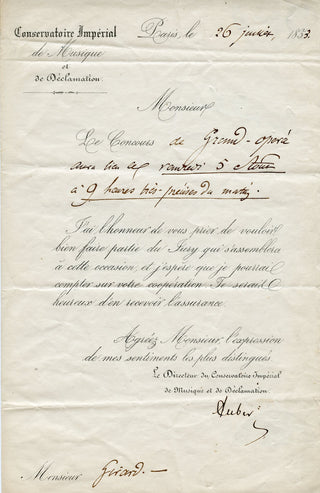 Conservatoire Impérial Paris, le 26 juillet, 1853.
de Musique
et
de Déclamation.
Monsieur
Le Concours de Grand-opéra
aura lieu le vendredi 5 Août
à 9 heures très-précises du matin.
J'ai l'honneur de vous prier de vouloir
bien faire partie du Jury qui s'assemblera
à cette occasion, et j'espère que je pourrai
compter sur votre coopération. Je serais
heureux d'en recevoir l'assurance.
Agréez Monsieur, l'expression
de mes sentiments les plus distingués
Le Directeur du Conservatoire Impérial
de Musique et de Déclamation.
Auber
Monsieur Girard.—